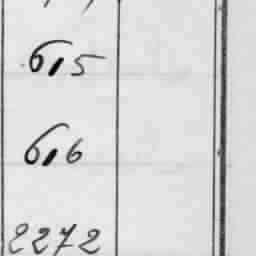 6,5
6,6
2272